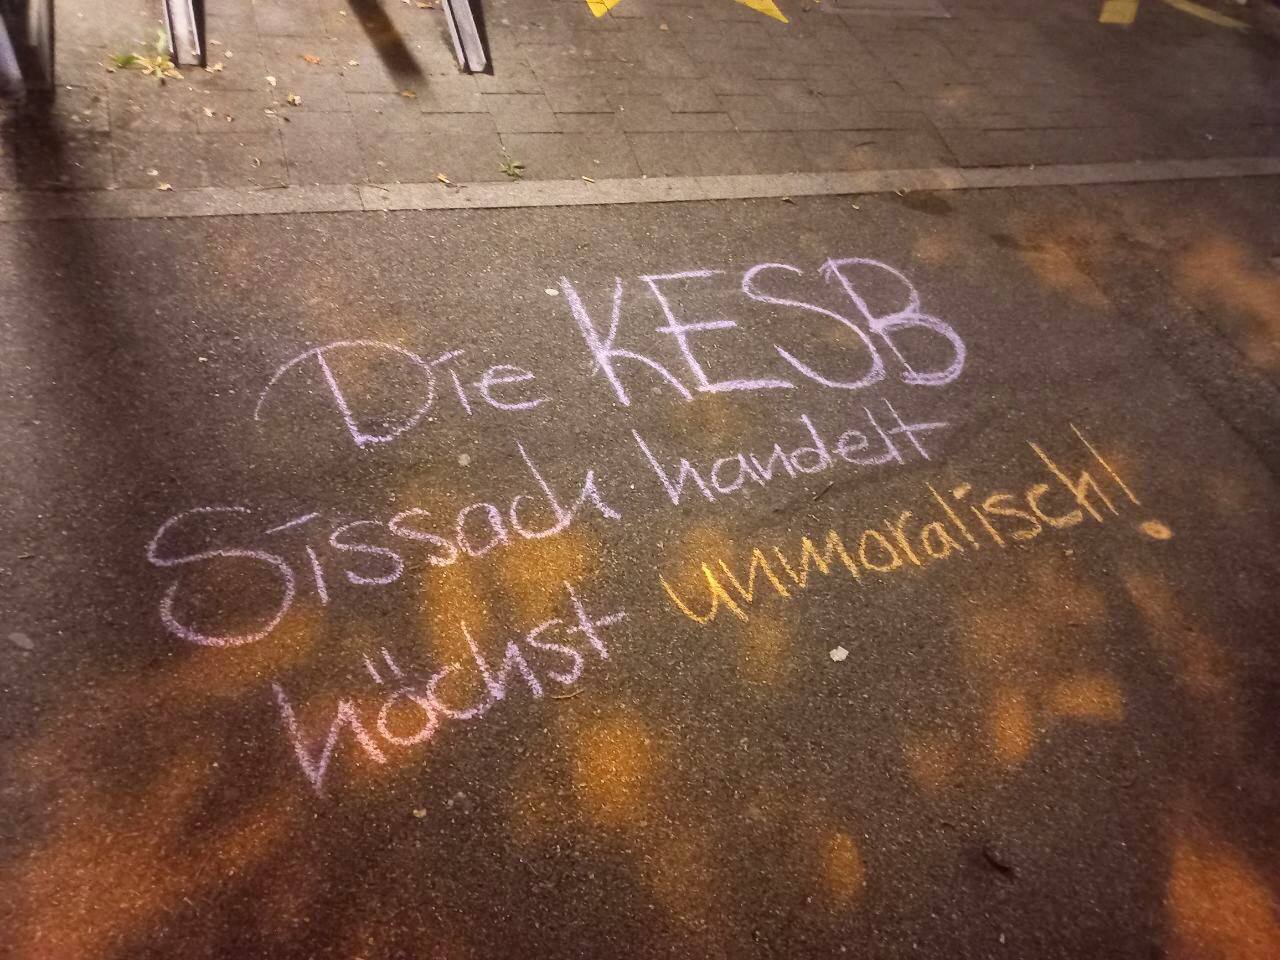 Die KESB
Sissach handelt
höchst unmoralisch!